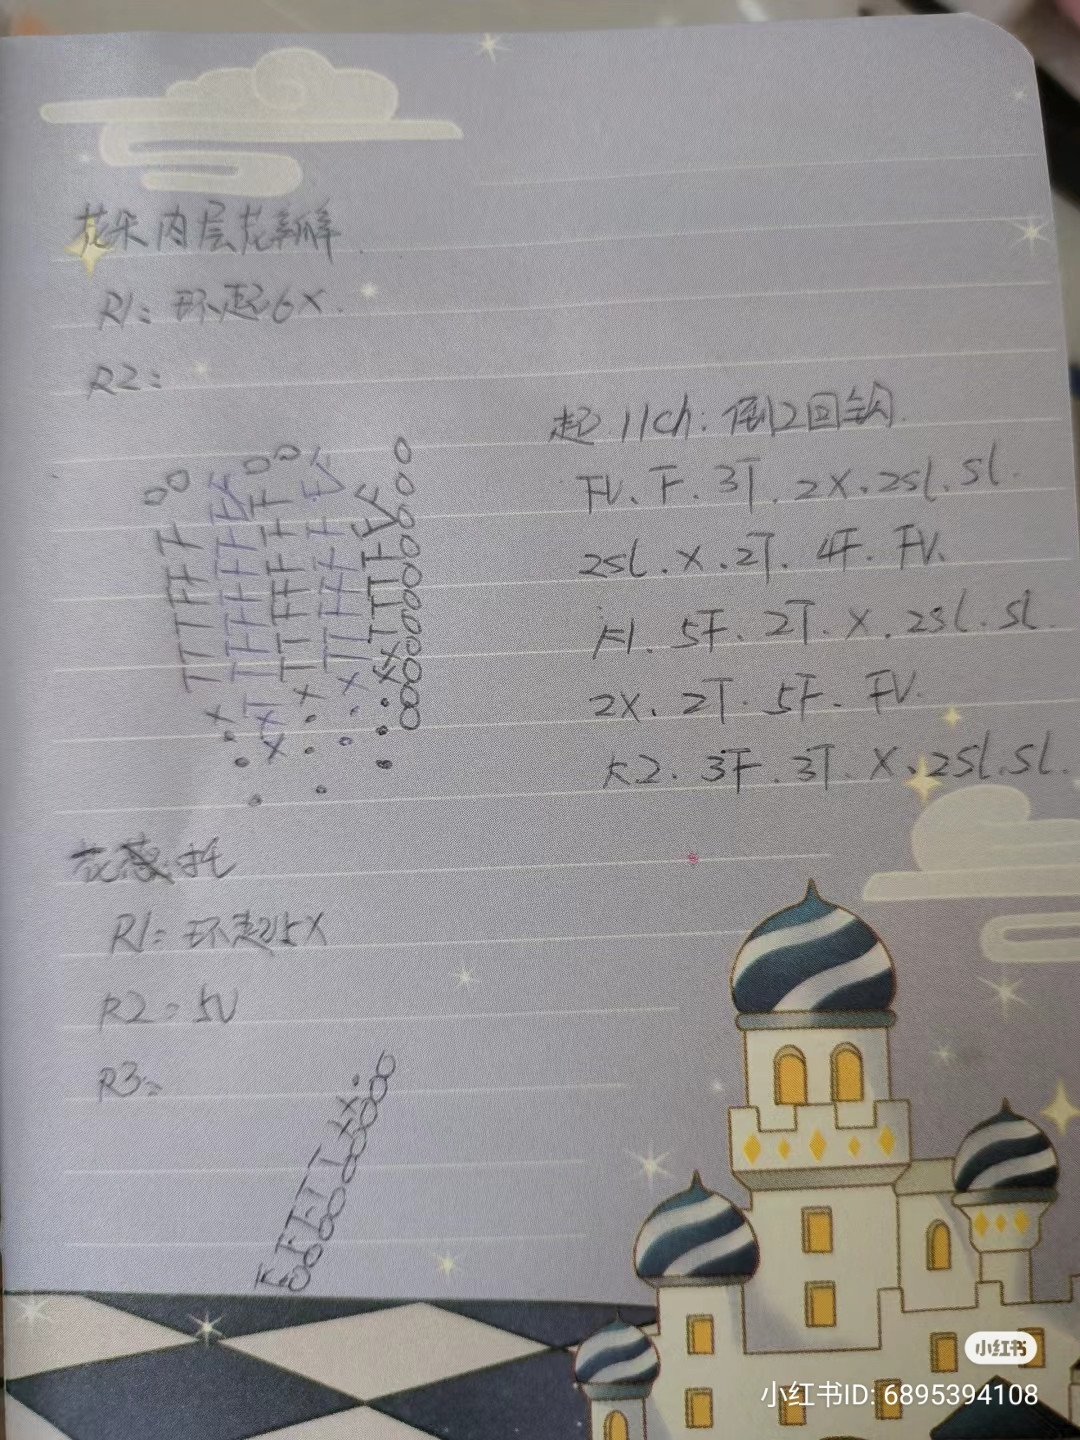 花朵内层花瓣
R1: 环起6X.
R2:
起 11ch: 倒2回钩.
FV. F. 3T. 2X. 2sl. sl.
2sl. X. 2T. 4F. FV.
K1. 5F. 2T. X. 2sl. sl.
2X. 2T. 5F. FV.
K2. 3F. 3T. X. 2sl. sl.
花托
R1: 环起5X
R2: 5V
R3:
小红书
小红书ID: 6895394108